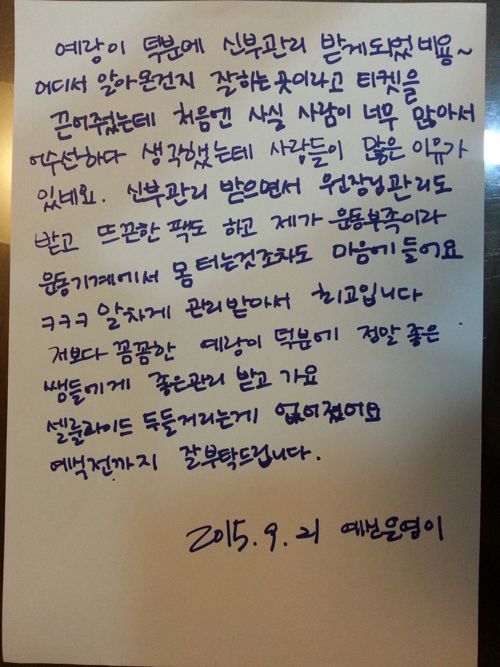 예랑이 덕분에 신부관리 받게되었네용~
어디서 알아온건지 잘하는곳이라고 티켓을
끈어줬는데 처음엔 사실 사람이 너무 많아서
어수선하다 생각했는데 사람들이 많은 이유가
있네요. 신부관리 받으면서 원장님관리도
받고 뜨끈한 팩도 하고 제가 운동부족이라
운동기계에서 몸 터는것조차도 마음에 들어요
ㅋㅋㅋ 알차게 관리받아서 최고입니다
저보다 꼼꼼한 예랑이 덕분에 정말 좋은
쌤들에게 좋은관리 받고 가요
셀룰라이드 두들거리는게 없어졌어요
예식전까지 잘부탁드립니다.
2015. 9. 21 예신은영이